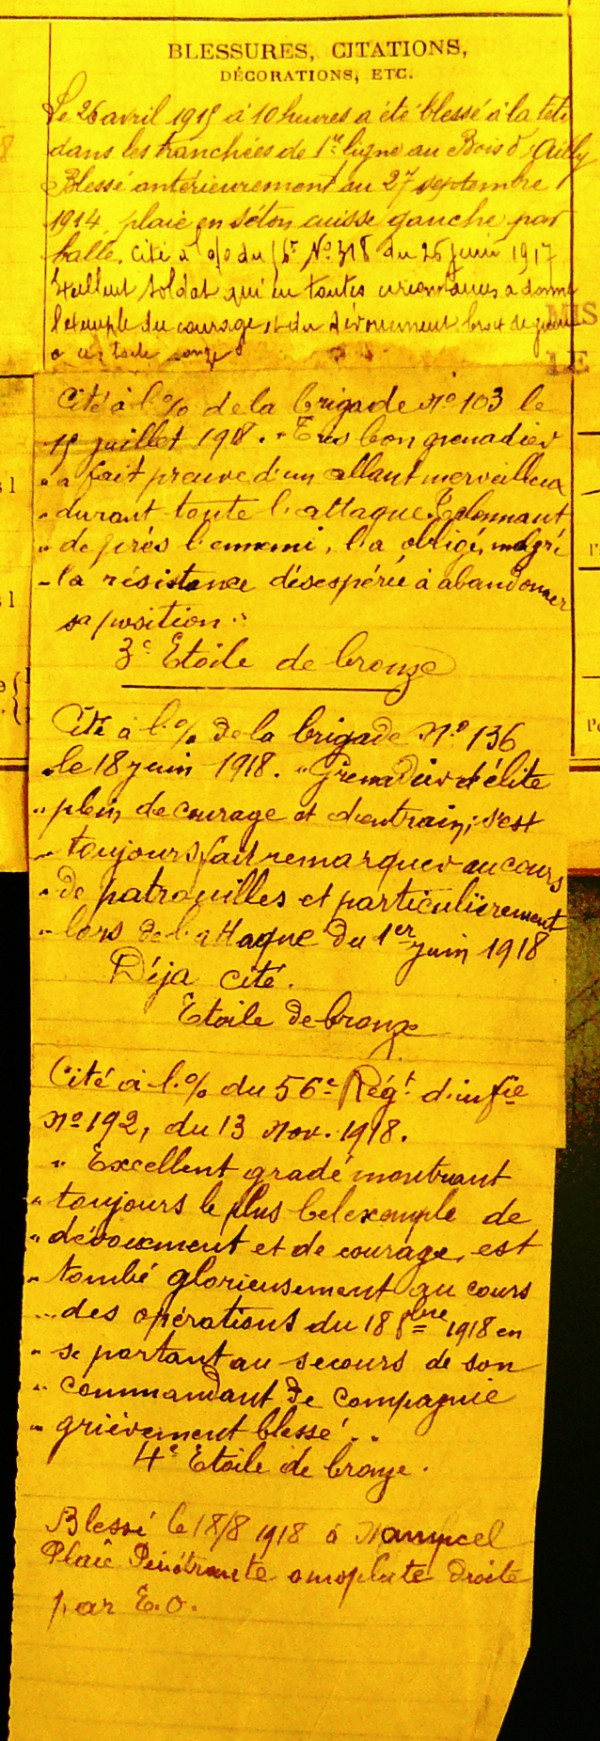 BLESSURES, CITATIONS,
DÉCORATIONS, ETC.
Le 26 avril 1915 à 10 heures a été blessé à la tête
dans les tranchées de 1re ligne au Bois d'Ailly
Blessé antérieurement au 27 septembre
1914, plaie en séton cuisse gauche par
balle. Cité à l'o/o du 56e No 318 du 26 juin 1917
Excellent soldat qui en toutes circonstances a donné
l'exemple du courage et du dévouement.
MIS
LE
Cité à l'% de la brigade No 103 le
15 juillet 1918. "Très bon grenadier
" a fait preuve d'un allant merveilleux
" durant toute l'attaque. Talonnant
" de près l'ennemi, l'a obligé, malgré
" la résistance désespérée à abandonner
sa position."
3e Etoile de bronze
Cité à l'% de la brigade No 136
le 18 juin 1918. "Grenadier d'élite
" plein de courage et d'entrain; s'est
" toujours fait remarquer au cours
" de patrouilles et particulièrement
" lors de l'attaque du 1er juin 1918
Déja cité.
Etoile de bronze
Cité à l'% du 56e Régt d'infie
No 192, du 13 nov. 1918.
" Excellent gradé montrant
" toujours le plus bel exemple de
" dévouement et de courage, est
" tombé glorieusement au cours
" des opérations du 18 8bre 1918 en
" se portant au secours de son
" commandant de compagnie
" grièvement blessé".
4e Etoile de bronze.
Blessé le 18/8 1918 à Nampcel
Plaie Pénétrante omoplate droite
par E.O.